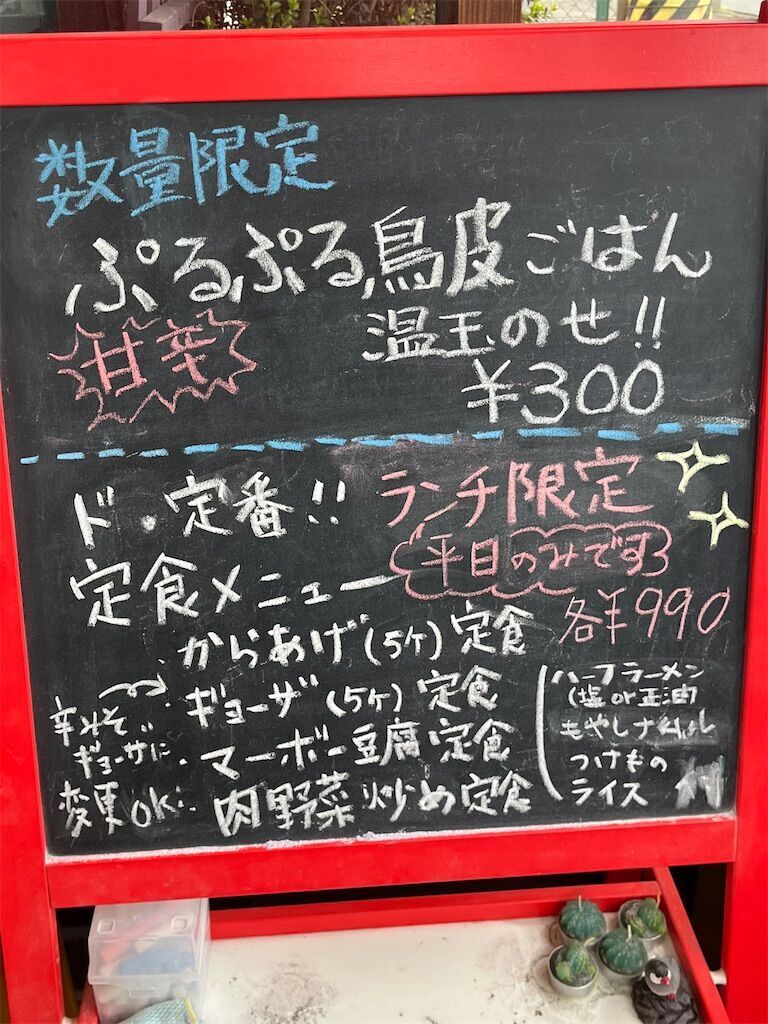 数量限定
ぷるぷる鳥皮ごはん
甘辛
温玉のせ!!
¥300
ド・定番!!
ランチ限定
定食メニュー
平日のみです
各¥990
からあげ(5ケ)定食
ギョーザ(5ケ)定食
マーボー豆腐定食
肉野菜炒め定食
辛みそ
ギョーザに
変更OK!
ハーフラーメン
(塩or正油)
もやしナムル
つけもの
ライス